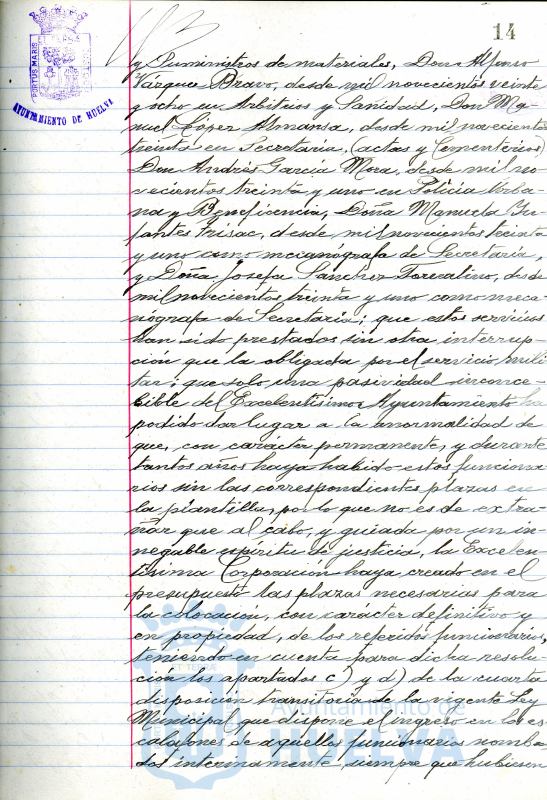 14
PORTUS MARIS
AYUNTAMIENTO DE HUELVA
y Suministros de materiales, Don Alfonso
Vázquez Bravo, desde mil novecientos veinte
y ocho en Arbitrios y Sanidad, Don Ma-
nuel López Almansa, desde mil novecientos
treinta en Secretaría, (actas y Cementerios)
Don Andrés García Mora, desde mil no-
vecientos treinta y uno en Policía Urba-
na y Beneficencia, Doña Manuela In-
fantes Frisac, desde mil novecientos treinta
y uno como mecanógrafa de Secretaría,
y Doña Josefa Sánchez desde
mil novecientos treinta y uno como meca-
nógrafa de Secretaría; que estos servicios
han sido prestados sin otra interrup-
ción que la obligada por el servicio mili-
tar; que solo una pasividad inconce-
bible del Excelentísimo Ayuntamiento ha
podido dar lugar a la anormalidad de
que, con carácter permanente, y durante
tantos años haya habido estos funciona-
rios sin las correspondientes plazas en
la plantilla, por lo que no es de extra-
ñar que al cabo, y guiada por un in-
negable espíritu de justicia, la Excelen-
tísima Corporación haya creado en el
presupuesto las plazas necesarias para
la colocación, con carácter definitivo y
en propiedad, de los referidos funcionarios,
teniendo en cuenta para dicha resolu-
ción los apartados c) y d) de la cuarta
disposición transitoria de la vigente Ley
Municipal que dispone el ingreso en los es-
calafones de aquellos funcionarios nombra-
dos interinamente, siempre que hubiesen
Ayuntamiento de
HUELVA